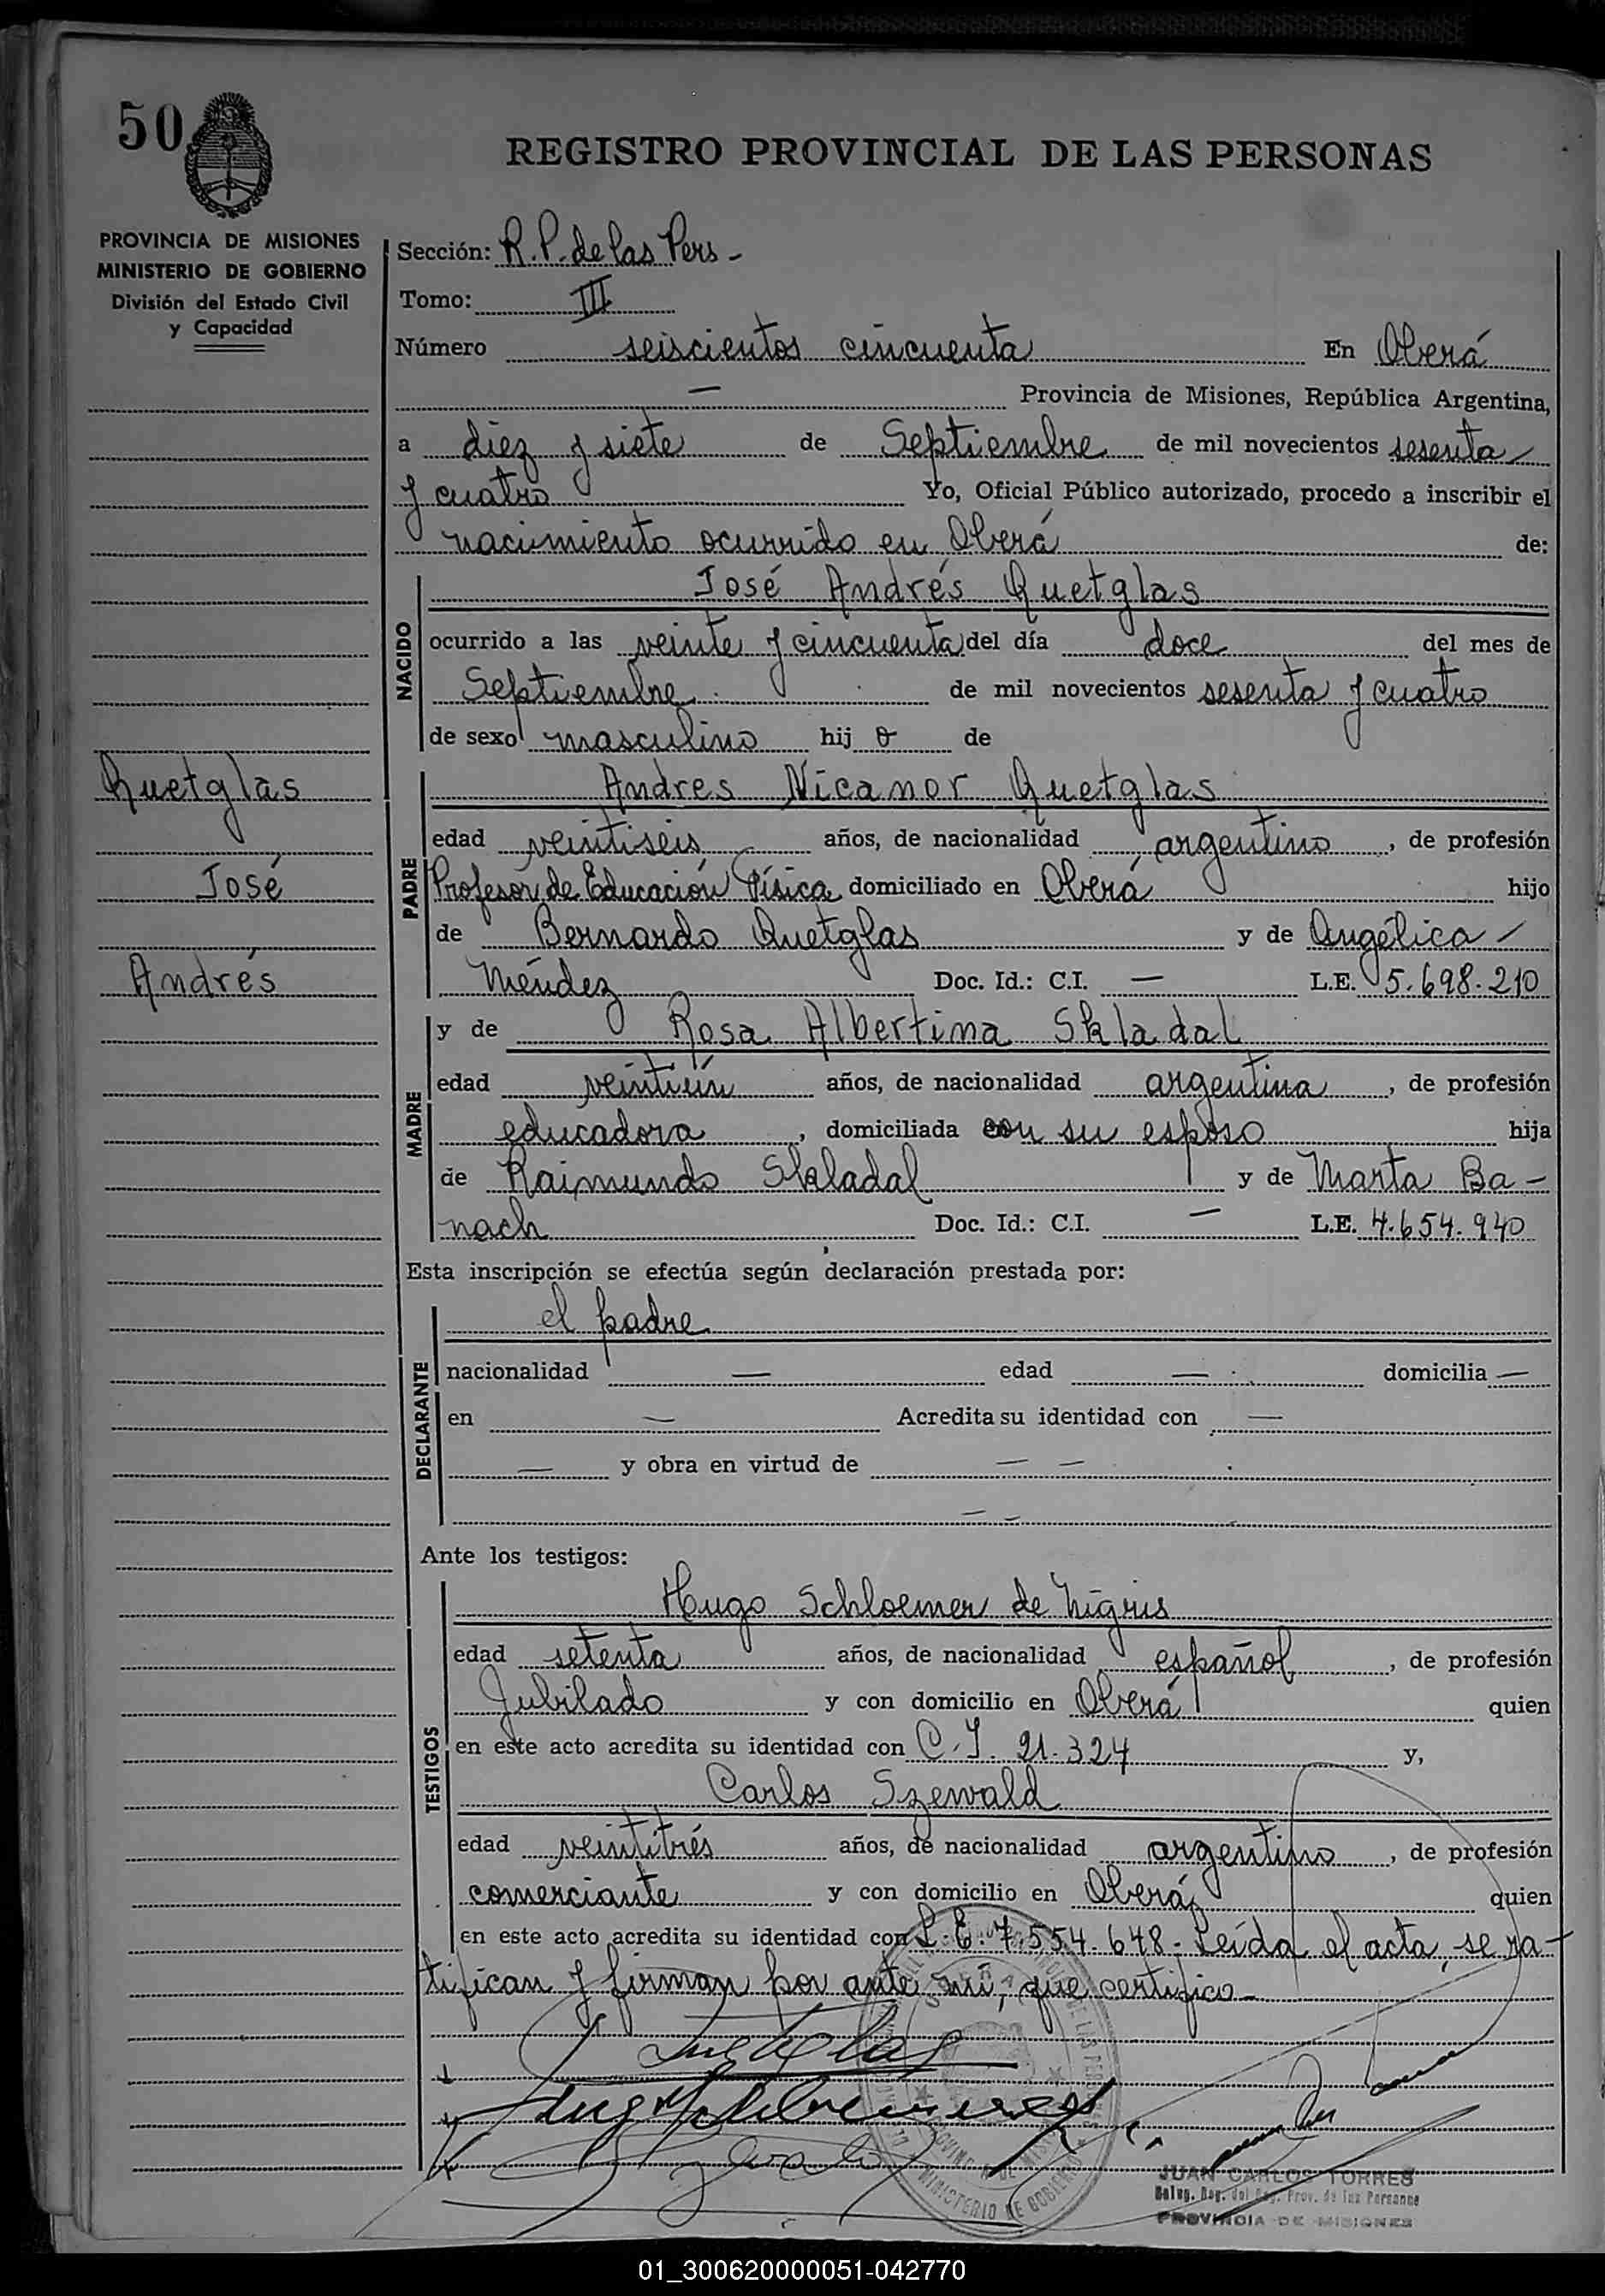 50
REGISTRO PROVINCIAL DE LAS PERSONAS
PROVINCIA DE MISIONES
MINISTERIO DE GOBIERNO
División del Estado Civil
y Capacidad
Sección: R. P. de las Pers -
Tomo: III
Número seiscientos cincuenta En Oberá
— Provincia de Misiones, República Argentina,
a diez y siete de Septiembre de mil novecientos sesenta
y cuatro Yo, Oficial Público autorizado, procedo a inscribir el
nacimiento ocurrido en Oberá de:
NACIDO
José Andrés Quetglas
ocurrido a las veinte y cincuenta del día doce del mes de
Septiembre de mil novecientos sesenta y cuatro
de sexo masculino hij o de
Quetglas
José
Andrés
PADRE
Andres Nicanor Quetglas
edad veintiseis años, de nacionalidad argentino, de profesión
Profesor de Educación Física domiciliado en Oberá hijo
de Bernardo Quetglas y de Angélica -
Méndez Doc. Id.: C.I. — L.E. 5.698.210
MADRE
y de Rosa Albertina Skladal
edad veintiún años, de nacionalidad argentina, de profesión
educadora, domiciliada con su esposo hija
de Raimundo Skladal y de Marta Ba-
nach Doc. Id.: C.I. — L.E. 4.654.940
Esta inscripción se efectúa según declaración prestada por:
DECLARANTE
el padre
nacionalidad — edad — domicilia —
en — Acredita su identidad con —
— y obra en virtud de — —
— —
Ante los testigos:
TESTIGOS
Hugo Schloemer de Nigris
edad setenta años, de nacionalidad español, de profesión
Jubilado y con domicilio en Oberá quien
en este acto acredita su identidad con C. I. 21.324 y,
Carlos Szewald
edad veintitrés años, de nacionalidad argentino, de profesión
comerciante y con domicilio en Oberá quien
en este acto acredita su identidad con L. E. 7.554.648. Leída el acta, se ra-
tifican y firman por ante mí, que certifico -
Quetglas
MINISTERIO DE GOBIERNO
JUAN CARLOS TORRES
PROVINCIA DE MISIONES
01_300620000051-042770